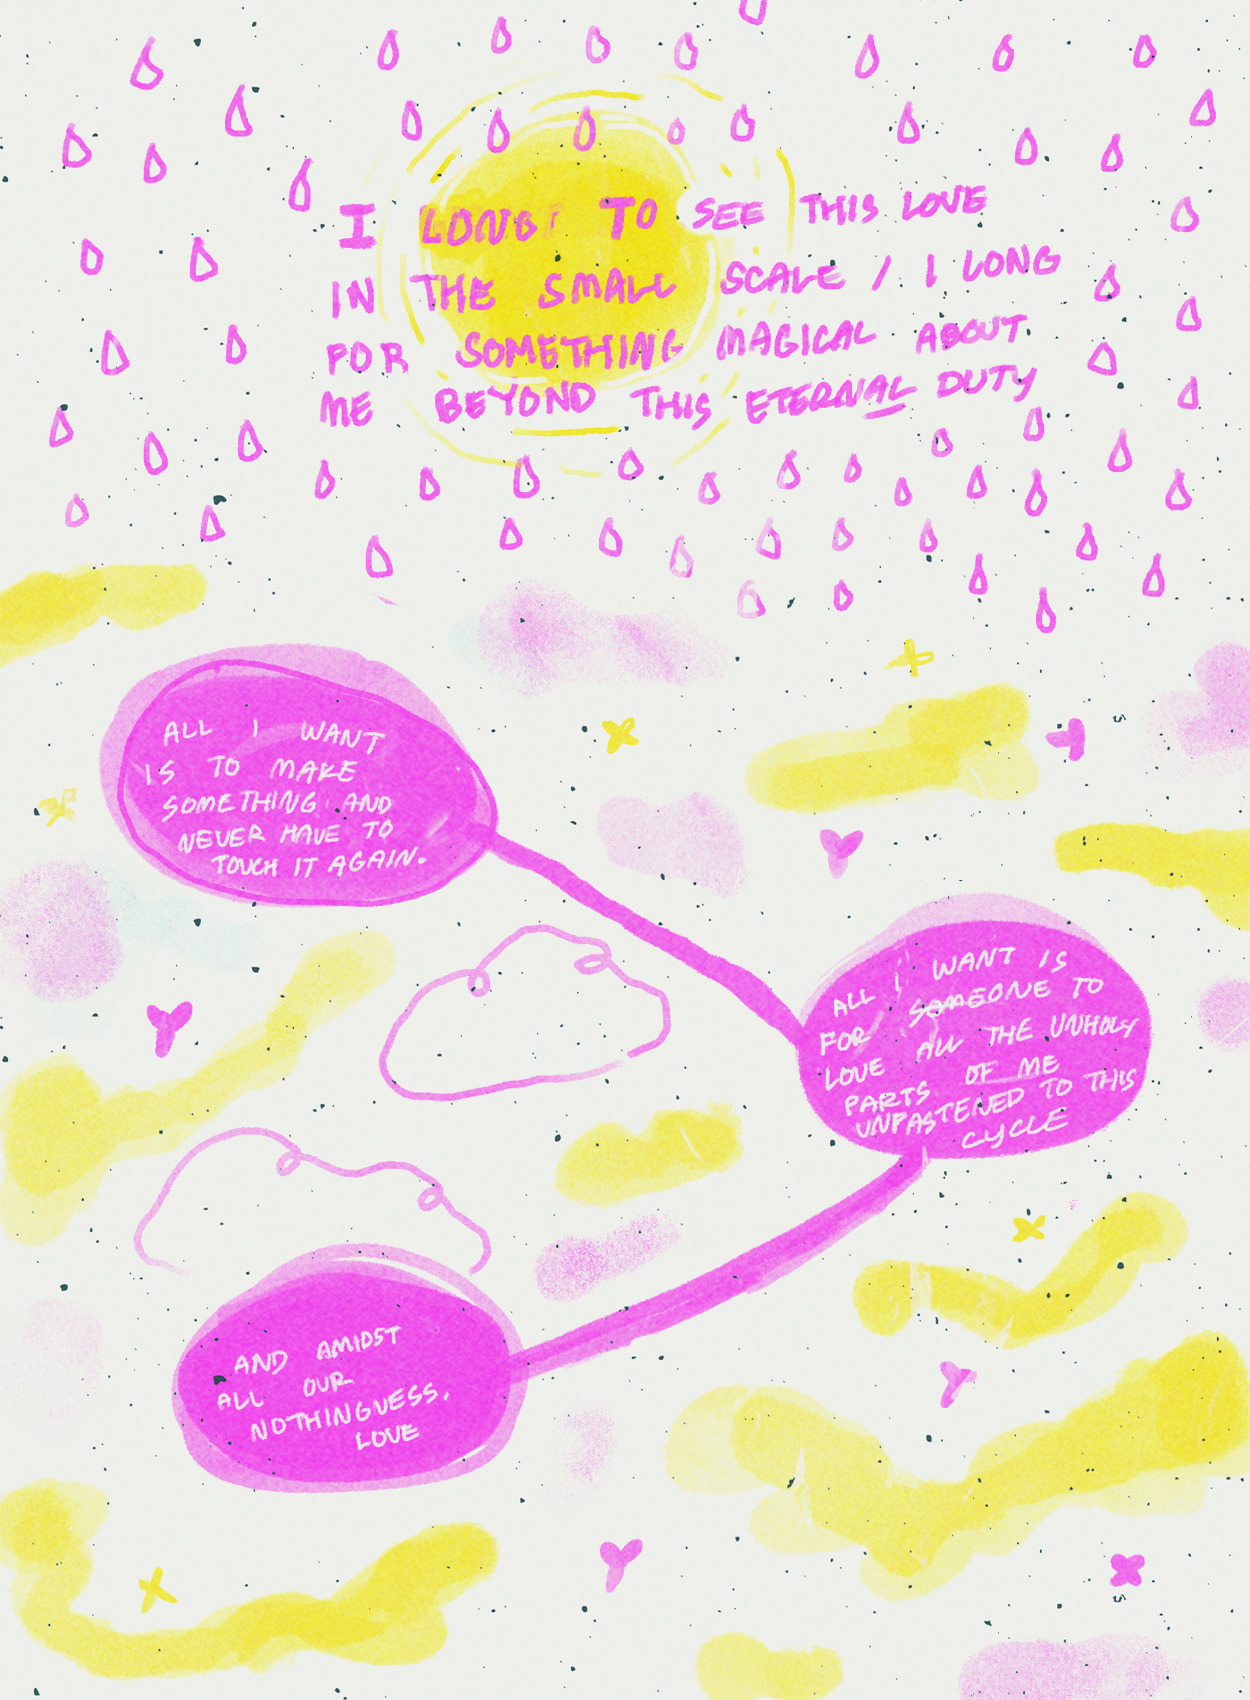 I LONG TO SEE THIS LOVE
IN THE SMALL SCALE / I LONG
FOR SOMETHING MAGICAL ABOUT
ME BEYOND THIS ETERNAL DUTY
ALL I WANT
IS TO MAKE
SOMETHING AND
NEVER HAVE TO
TOUCH IT AGAIN.
ALL I WANT IS
FOR SOMEONE TO
LOVE ALL THE UNHOLY
PARTS OF ME
UNFASTENED TO THIS
CYCLE
AND AMIDST
ALL OUR
NOTHINGNESS,
LOVE